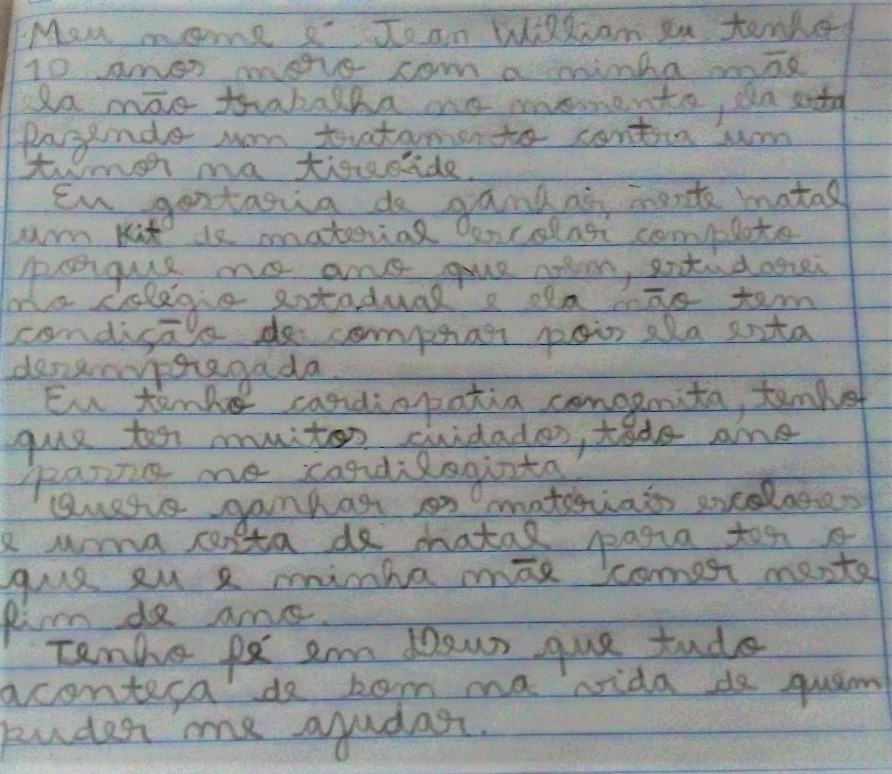 Meu nome é Jean Willian eu tenho
10 anos moro com a minha mãe
ela não trabalha no momento, ela esta
fazendo um tratamento contra um
tumor na tireóide.
Eu gostaria de ganhar, neste natal
um Kit de material escolar completo
porque no ano que vem, estudarei
no colégio estadual e ela não tem
condição de comprar pois ela esta
desempregada.
Eu tenho cardiopatia congenita, tenho
que ter muitos cuidados, todo ano
passo no cardilogista
Quero ganhar os materiais escolares
e uma cesta de natal para ter o
que eu e minha mãe comer neste
fim de ano.
Tenho fé em Deus que tudo
aconteça de bom na vida de quem
puder me ajudar.